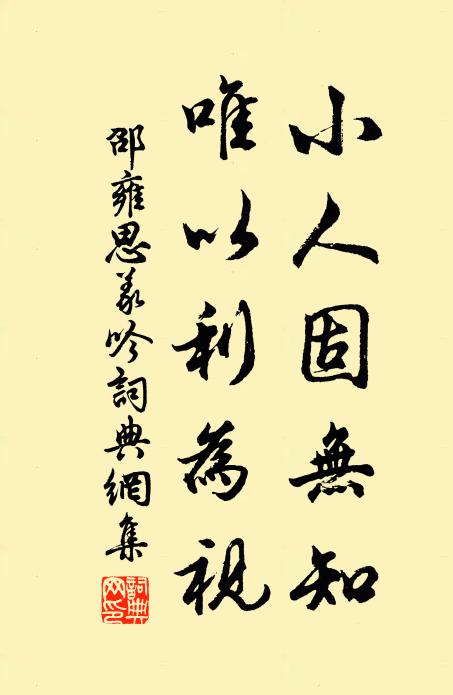 小人固無知
唯以利為視
邵雍思義吟詞典網集
詞典网印